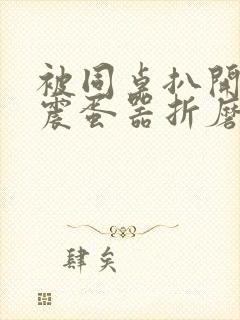 被同桌扒開
震蛋器折磨
肆矣